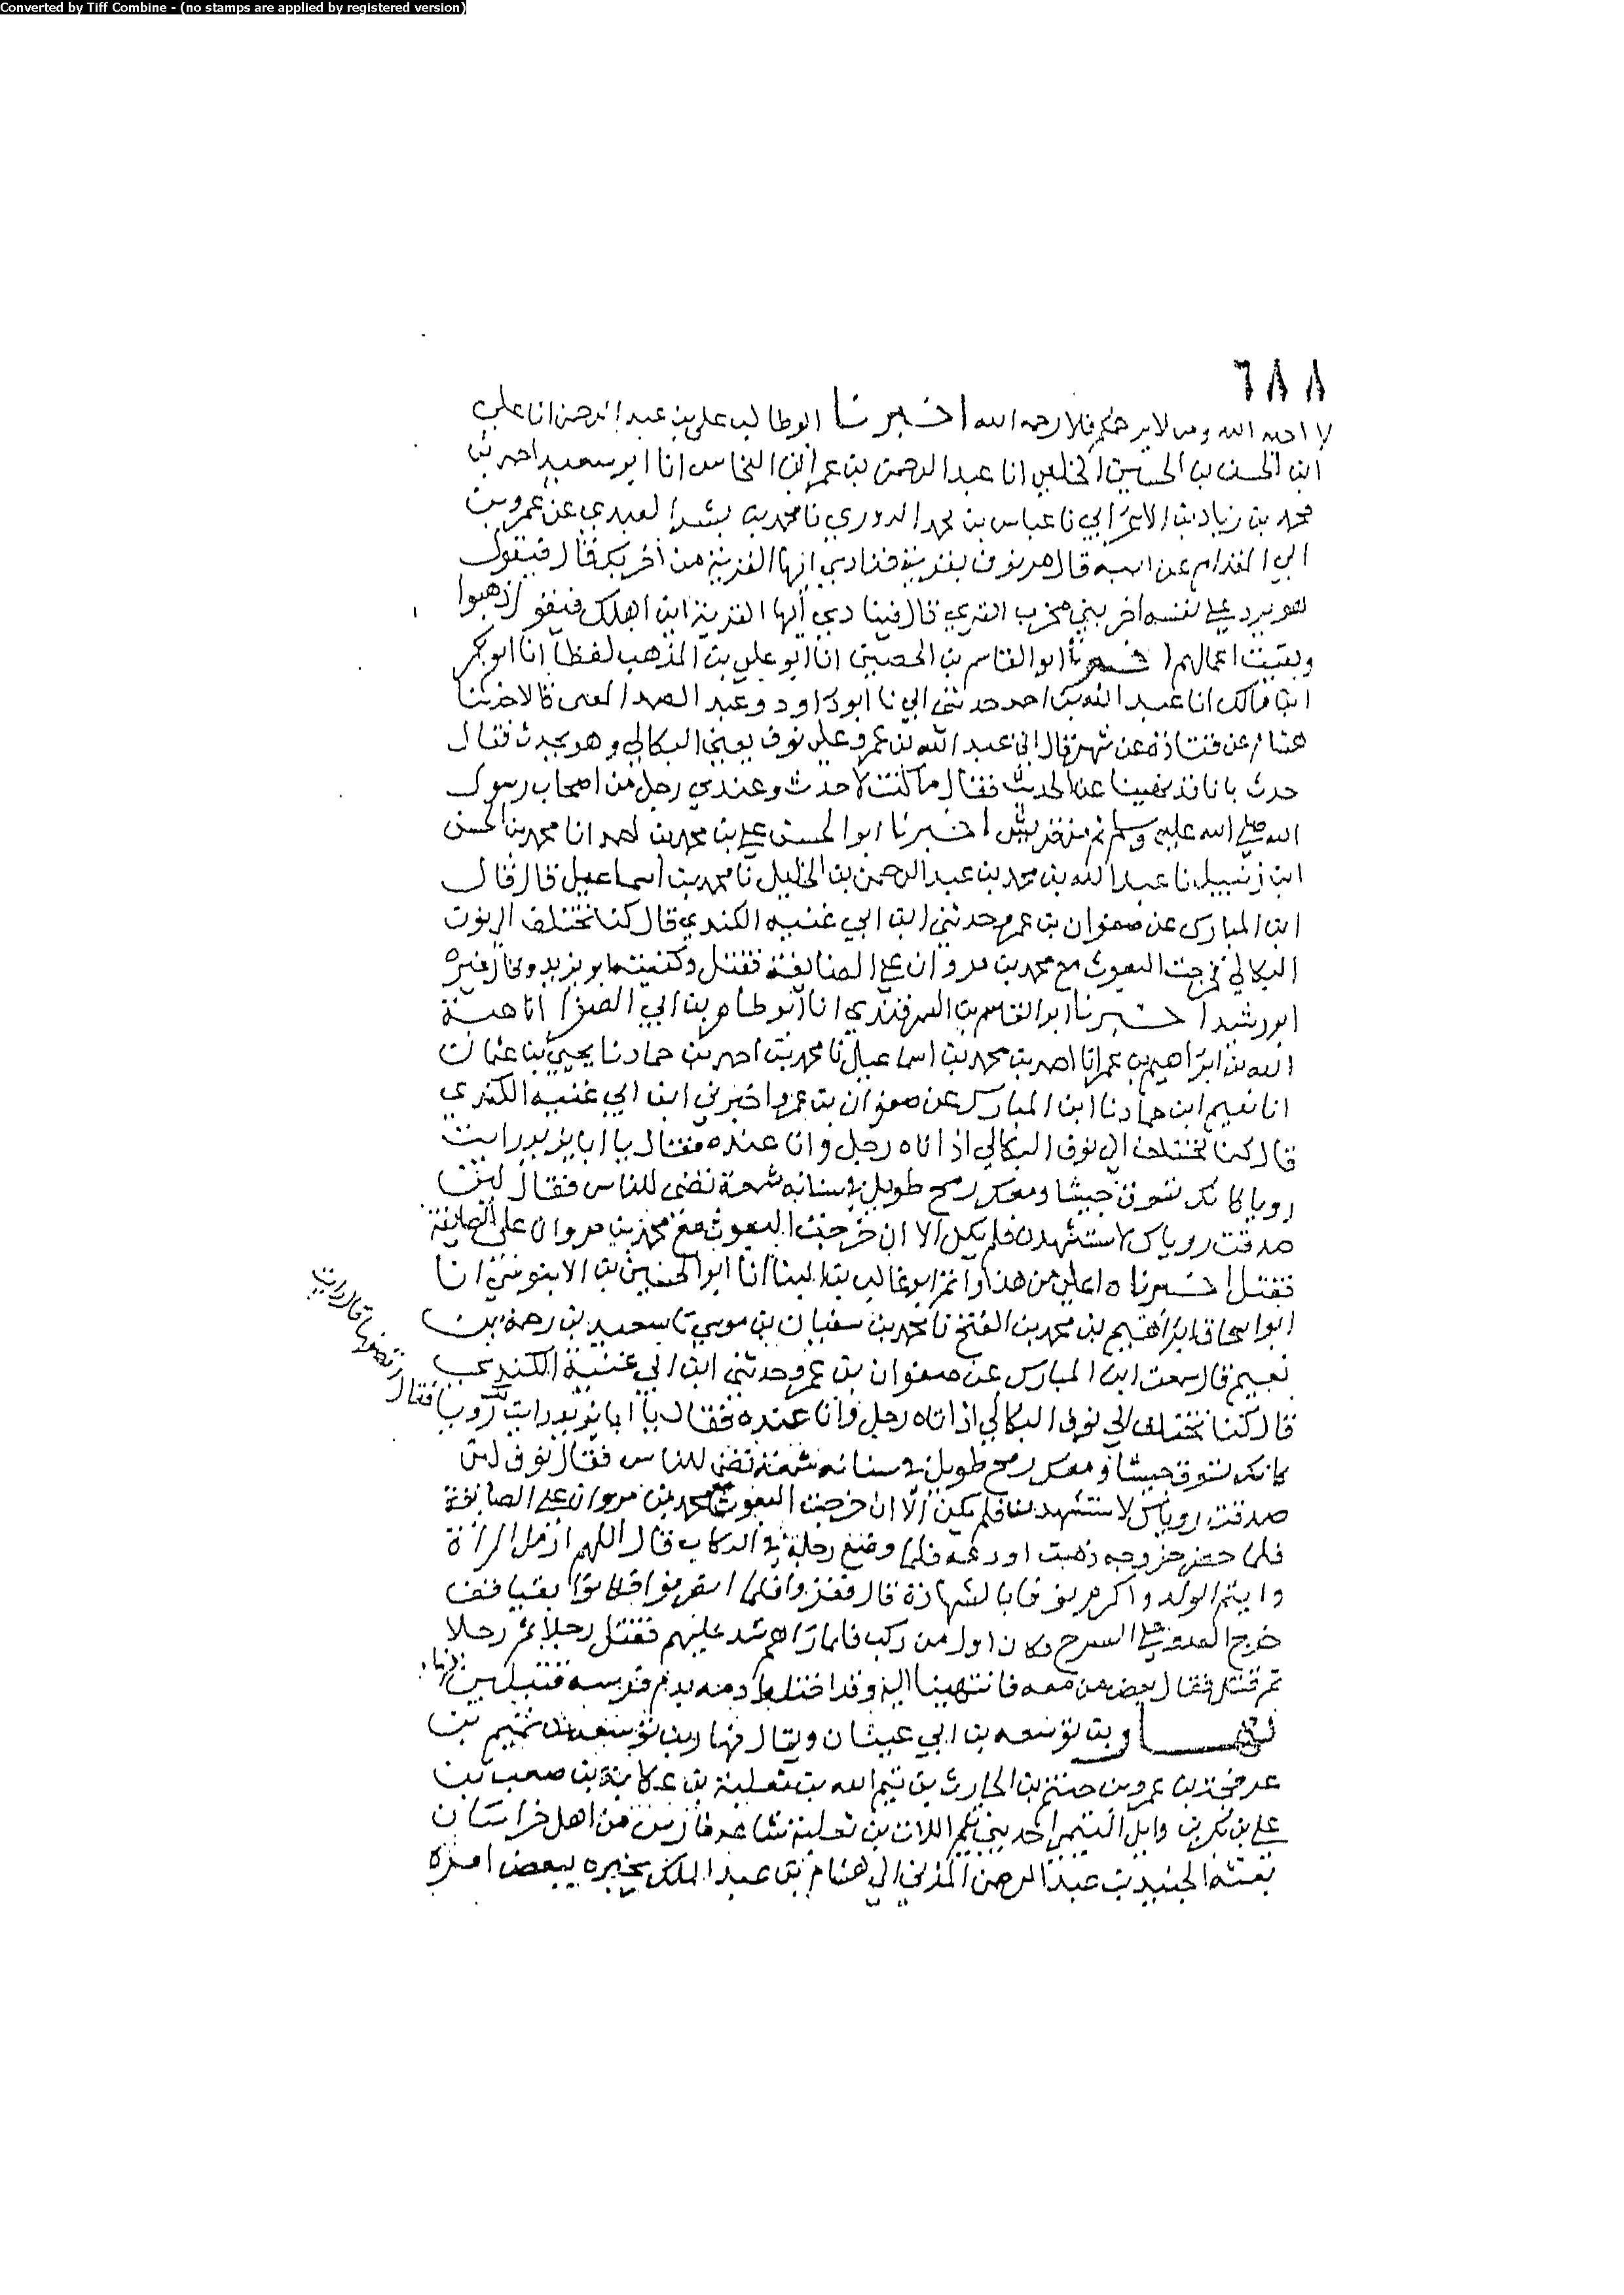 Converted by Tiff Combine - (no stamps are applied by registered version)
٦٨٨
لا احد الله ومن لا يرحمكم فلا رحمه الله اخبرنا ابو طالب علي بن عبد الرحمن انا علي
ابن الحسن بن الحسين الخلعي انا عبد الرحمن بن عمر ابن النحاس انا ابو سعيد احمد بن
محمد بن زياد بن الاعرابي نا عباس بن محمد الدوري نا محمد بن بشر العبدي عن عمرو بن
ابي المقدام عن ابيه قال مر نوف بقرية فنادي ايها القرية من اخربك قال فيقول
هو يرد علي نفسه اخربني مخرب القري قال فينادي ايها القرية اين اهلك فيقول ذهبوا
وبقيت اعمالهم اخبرنا ابو القاسم بن الحصين انا ابو علي بن المذهب لفظا انا ابو بكر
ابن مالك انا عبد الله بن احمد حدثني ابي نا ابو داود وعبد الصمد المعنى قالا حدثنا
هشام عن قتادة عن شهر قال اتى عبد الله بن عمرو علي نوف يعني البكالي وهو يحدث فقال
حدث فانا قد نهينا عن الحديث فقال ما كنت لاحدث وعندي رجل من اصحاب رسول
الله صلي الله عليه وسلم ثم من قريش اخبرنا ابو الحسن علي بن محمد بن احمد انا محمد بن الحسن
ابن زنبيل نا عبد الله بن محمد بن عبد الرحمن بن الخليل نا محمد بن اسماعيل قال قال
ابن المبارك عن صفوان بن عمرو حدثني ابن ابي عنبه الكندي قال كنا نختلف الي نوف
البكالي فخرجت البعوث مع محمد بن مروان علي الصائفة فقتل وكنيته ابو يزيد وقال غيره
ابو رشيد اخبرنا ابو القاسم بن السمرقندي انا ابو طاهر بن ابي الصقر انا هبة
الله بن ابراهيم بن عمر انا احمد بن محمد بن اسماعيل نا محمد بن احمد بن حماد نا يحيي بن عثمان
انا نعيم ابن حماد نا ابن المبارك عن صفوان بن عمرو اخبرني ابن ابي عنبه الكندي
قال كنا نختلف الي نوف البكالي اذ اتاه رجل وانا عنده فقال يا ابا يزيد رايت
رويا كانك تسوق جيشا ومعك رمح طويل في سنانه شمعة تضي للناس فقال لين
صدقت روياك لاستشهدن فلم يكن الا ان خرجت البعوث مع محمد بن مروان علي الصايفة
فقتل اخبرناه اعلي من هذا واتم ابو غالب بن البنا انا ابو الحسين بن الابنوسي انا
ابو اسحاق ابراهيم بن محمد بن الفتح نا محمد بن سفيان بن موسي نا سعيد بن رحمة بن
نعيم قال سمعت ابن المبارك عن صفوان بن عمرو حدثني ابن ابي عنبة الكندي
قال كنا نختلف الي نوف البكالي اذ اتاه رجل وانا عنده فقال يا ابا يزيد رايت لك رويا فقال اقصصها قال رايت
كانك تسوق جيشا ومعك رمح طويل في سنانه شمعة تضي للناس فقال نوف لين
صدقت روياك لاستشهدن فلم يكن الا ان خرجت البعوث مع محمد بن مروان علي الصايفة
فلما حضر خروجه ذهبت اودعه فلما وضع رجله في الركاب قال اللهم ارمل المراة
وايتم الولد واكرم نوفا بالشهادة قال فغزوا فلما انصرفوا
خرج العدو علي السرح فكان اول من ركب فلما راهم شد عليهم فقتل رجلا ثم رجلا
ثم قتل فقال بعض من معه فانتهينا اليه وقد اختلط دمه بدم فرسه قتيلين
بن توسعه بن ابي عتبان ويقال نهار بن توسعه بن تميم بن
عرفجة بن عمرو بن حنتم بن الحارث بن تيم الله بن ثعلبة بن عكابة بن صعب بن
علي بن بكر بن وايل التيمي احد بني تيم اللات بن ثعلبة شاعر فارس من اهل خراسان
بعثه الجنيد بن عبد الرحمن المري الي هشام بن عبد الملك يخبره ببعض امره